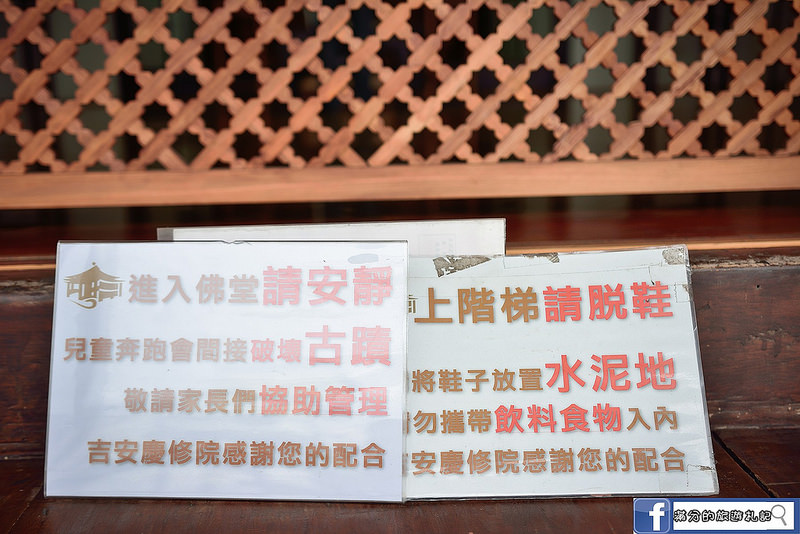 進入佛堂請安靜
兒童奔跑會間接破壞古蹟
敬請家長們協助管理
吉安慶修院感謝您的配合
上階梯請脫鞋
將鞋子放置水泥地
勿攜帶飲料食物入內
安慶修院感謝您的配合
f 滿分的旅遊札記